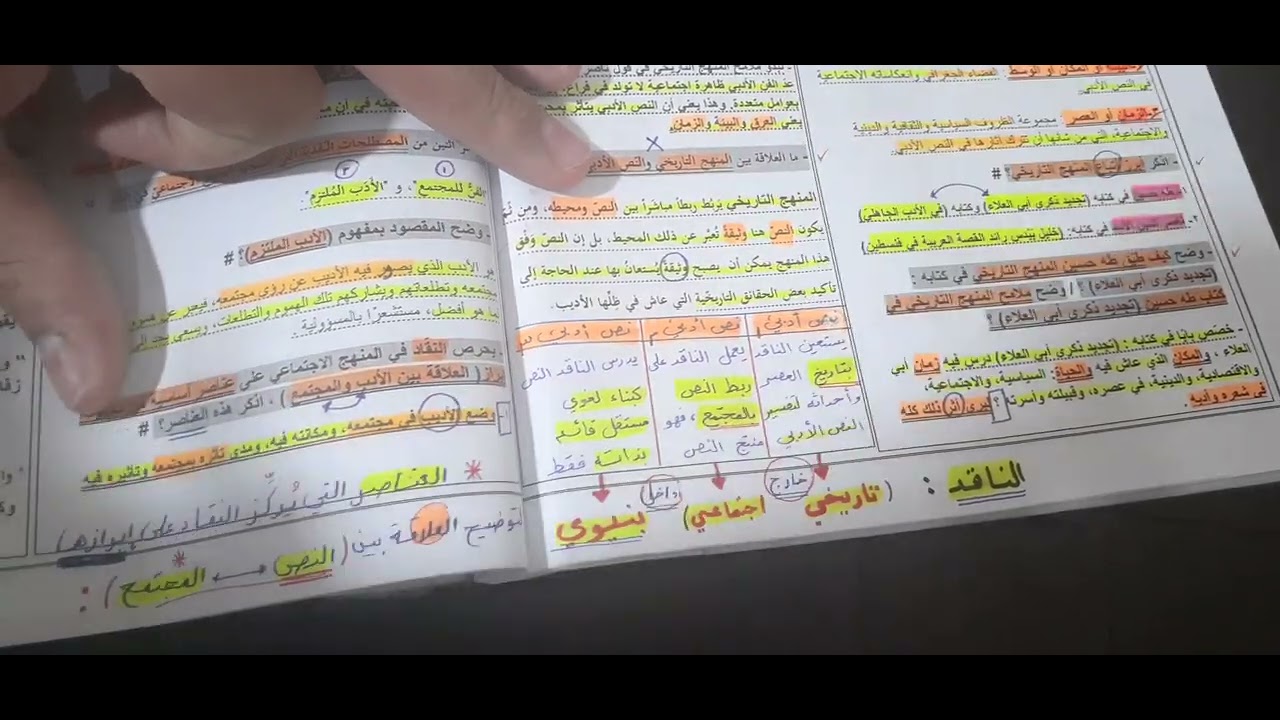 أو المكان أو الوسط: الفضاء الجغرافي وانعكاساته الاجتماعية
في النص الأدبي.
الزمان أو العصر: مجموعة الظروف السياسية والثقافية والدينية
والاجتماعية، التي من شأنها أن تترك آثارها في النص الأدبي.
- اذكر أبرز أتباع المنهج التاريخي؟ #
في كتابه (تجديد ذكرى أبي العلاء) وكتابه (في الأدب الجاهلي)
٢- في كتابه: (خليل بيدس رائد القصة العربية في فلسطين)
- وضح كيف طبق طه حسين المنهج التاريخي في كتابه :
(تجديد ذكرى أبي العلاء) ؟ / وضح ملامح المنهج التاريخي في
كتاب طه حسين (تجديد ذكرى أبي العلاء) ؟
- خصص بابًا في كتابه : (تجديد ذكرى أبي العلاء) درس فيه زمان أبي
العلاء ، والمكان الذي عاش فيه والحياة: السياسية، والاجتماعية،
والاقتصادية، والدينية، في عصره، وقبيلته وأسرته ؟ ليرى أثر ذلك كله
في شعره وأدبه.
- تبدو ملامح المنهج التاريخي في قول
عد الفن الأدبي ظاهرة اجتماعية لا تولد في فراغ،
بعوامل متعددة، وهذا يعني أن النص الأدبي يتأثر
يعني العرق والبيئة والزمان.
- ما العلاقة بين المنهج التاريخي والنص الأدبي
المنهج التاريخي يربط ربطًا مباشرًا بين النص ومحيطه، ومن
يكون النص هنا وثيقة تعبر عن ذلك المحيط، بل إن النص وفق
هذا المنهج يمكن أن يصبح وثيقة يُستعان بها عند الحاجة إلى
تأكيد بعض الحقائق التاريخية التي عاش في ظلها الأديب.
نص أدبي نص أدبي نص أدبي
يستعين الناقد يعمل الناقد على يدرس الناقد النص
بتاريخ العصر ربط النص كبناء لغوي
وأحداثه لتفسير بالمجتمع، فهو مستقل قائم
النص الأدبي منتج النص بذاته فقط
خارج داخل
الناقد : (تاريخي اجتماعي) بنيوي
اثنين من المصطلحات النقدية
١ ٢
"الفن للمجتمع"، و "الأدب الملتزم"
- وضح المقصود بمفهوم (الأدب الملتزم)؟ #
هو الأدب الذي يصور فيه الأديب عن رؤى مجتمعه، فيعبر عن
مجتمعه وتطلعاتهم ويشاركهم تلك الهموم والتطلعات، ويسعى
ما هو أفضل، مستشعرًا بالمسؤولية.
- يحرص النقاد في المنهج الاجتماعي على عناصر أساسية
إبراز ( العلاقة بين الأدب والمجتمع ) ، اذكر هذه العناصر؟ #
١- وضع الأديب في مجتمعه، ومكانته فيه، ومدى تأثره بمجتمعه وتأثيره فيه
* العناصر التي يُركّز النقاد على إبرازها
لتوضيح العلاقة بين (النص ↔ المجتمع) :